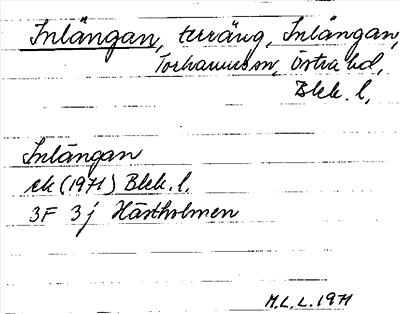 Inlängan, terräng, Inlängan,
Torhamns sn, Östra hd,
Blek. l,
Inlängan
ek (1971) Blek. l.
3F 3j Hästholmen
M.L.L. 1971